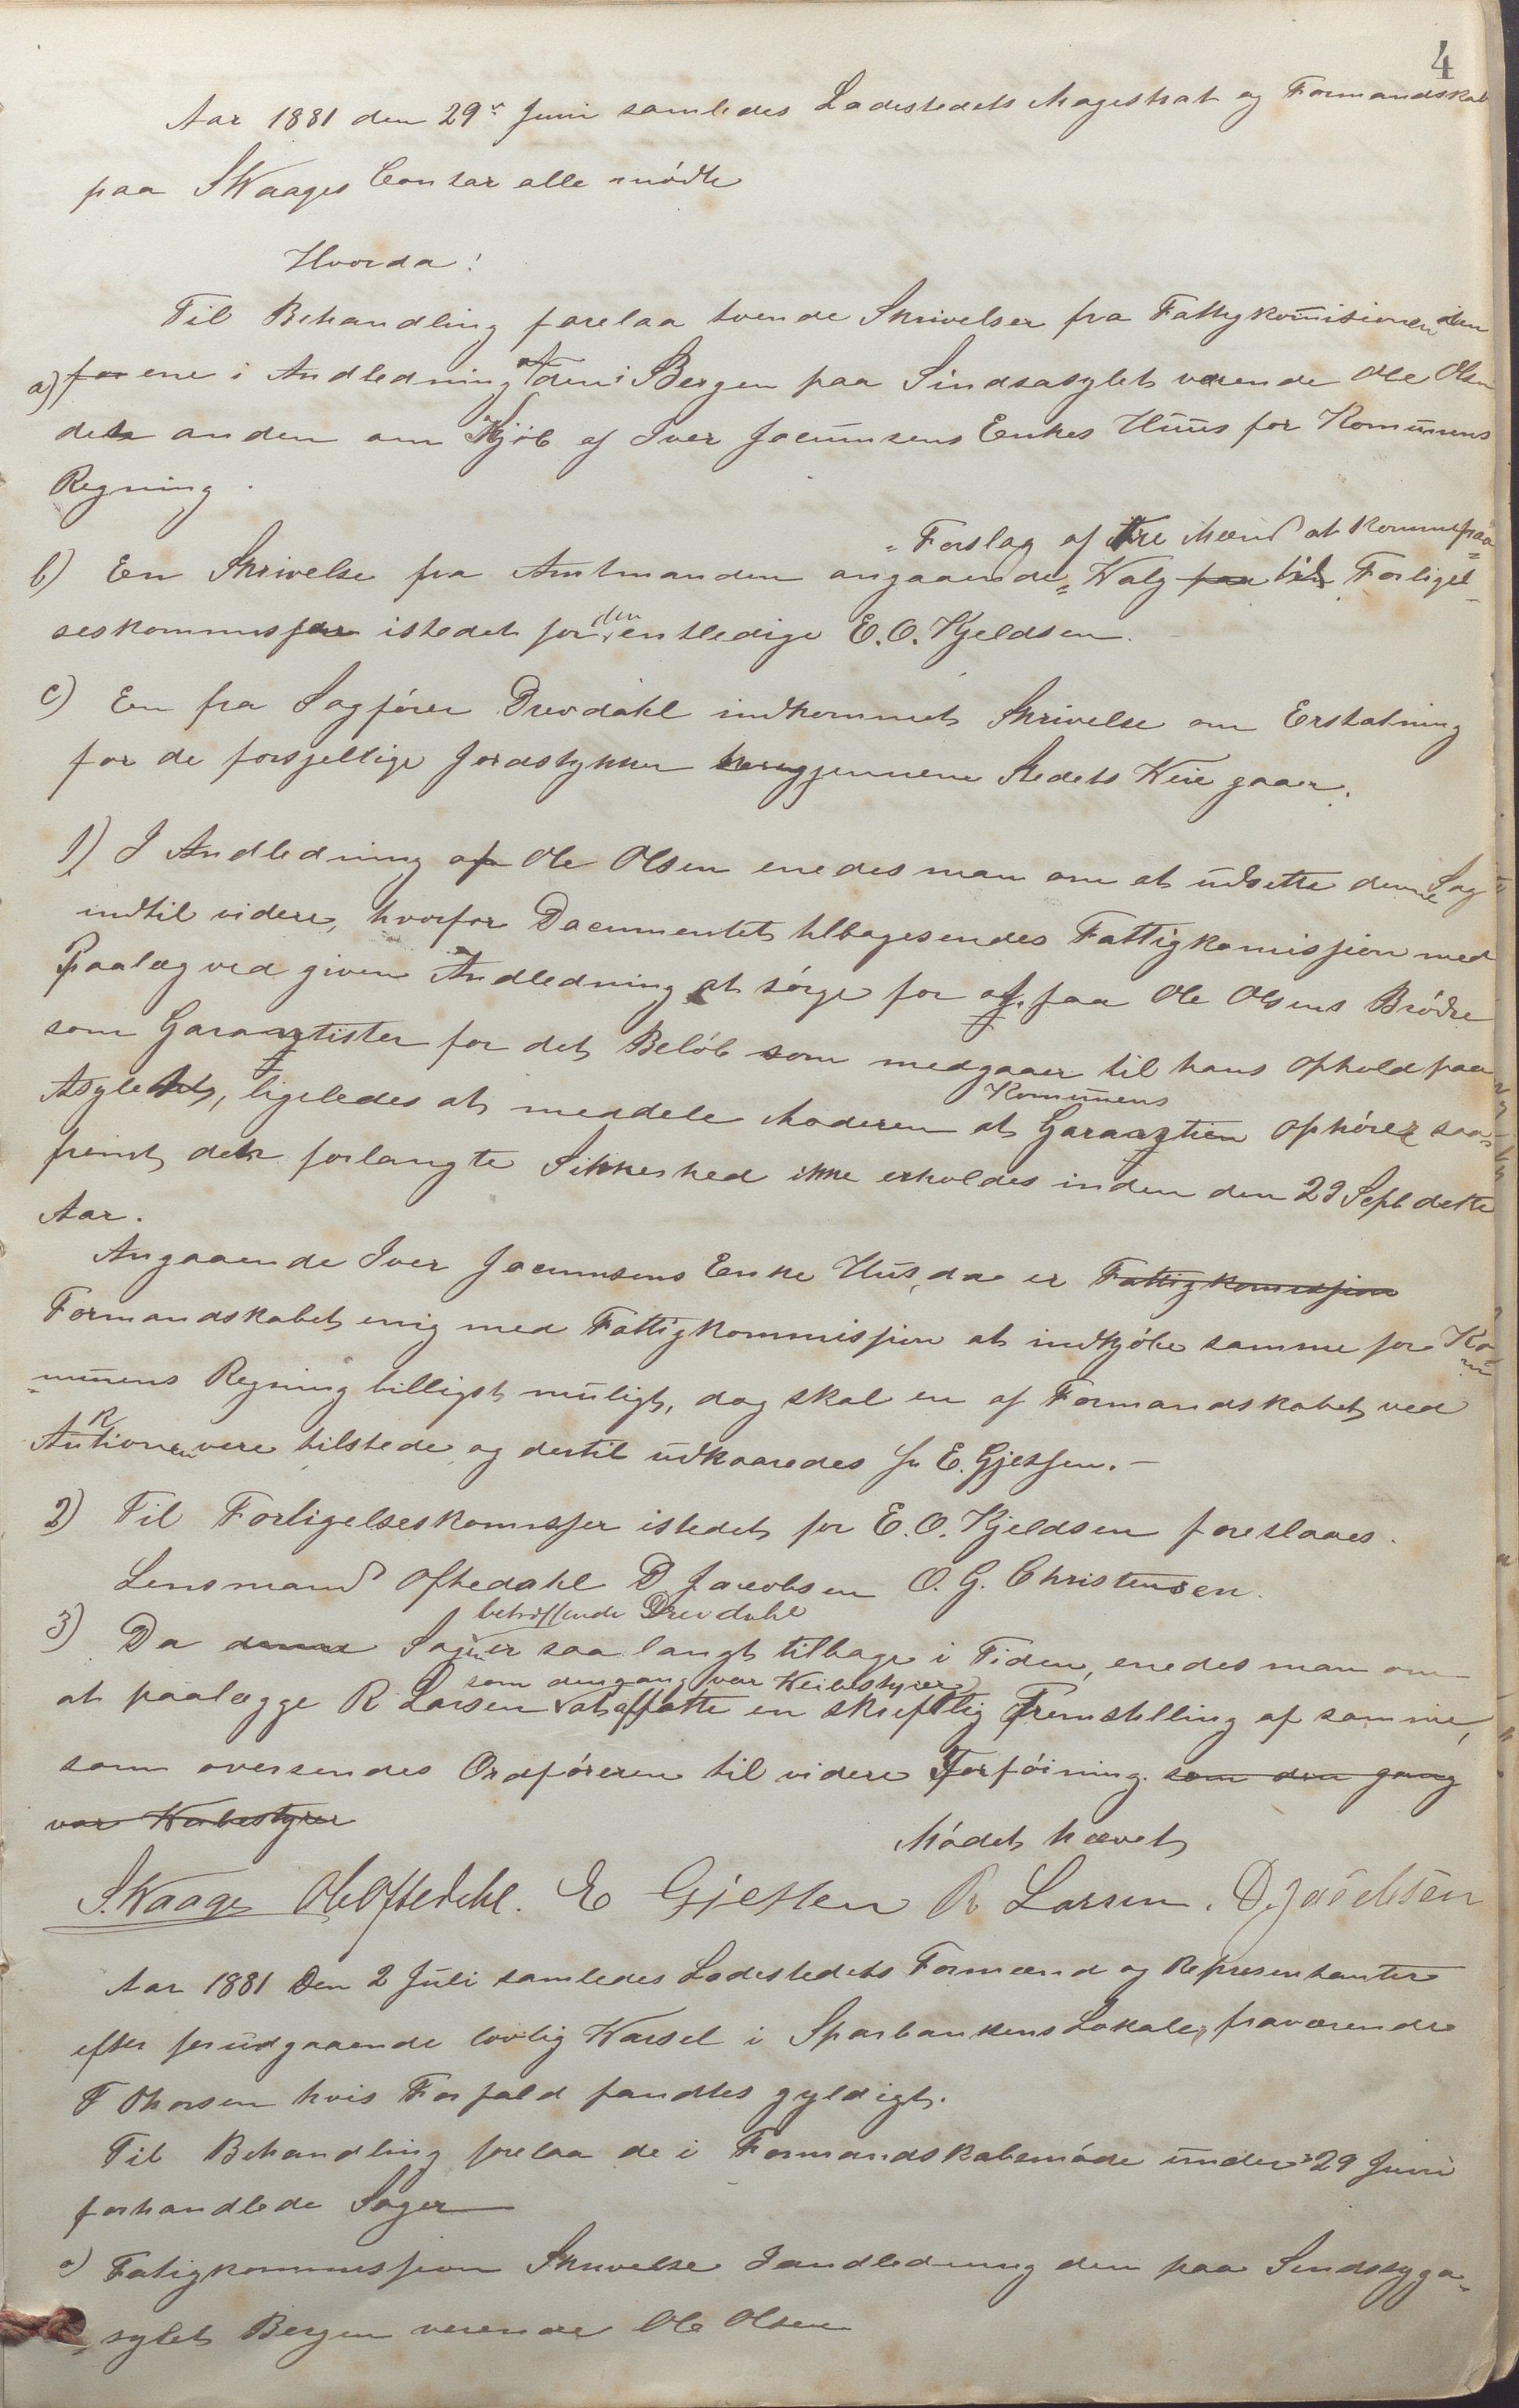 4
Aar 1881 den 29de Juni samledes Ladestedets Magistrat og Formandskab
paa S Waages Contor alle mødte
Hvorda!
Til Behandling forelaa tvende Skrivelser fra Fattigkomisionen den
a) ene i Andledning af den i Bergen paa Sindsasylet værende Ole Olsen
den anden om Kjøb af Iver Jocumsens Enkes Huus for Komunens
Regning.
"Forslag af tre Mænd at komme paa"
b) En Skrivelse fra Amtmanden angaaende Valg til Forligel-
seskommisær istedet for den entledige E. O. Kjeldsen.
c) En fra Sagfører Drevdahl indkommet Skrivelse om Erstatning
for de forsjellige Jordstykker hvorigjennem Stedets Veie gaaer.
1) I Andledning af Ole Olsen enedes man om at udsette denne Sag
indtil videre, hvorfor Documentet tilbagesendes Fattigkomission med
Paalæg ved given Andledning at sørge for at faa Ole Olsens Brødre
som Garantister for det Beløb som medgaaer til hans Ophold paa
Asylet, ligeledes at meddele Moderen at Komunens Garantien ophører saa-
fremt den forlangte Sikkerhed ikke erholdes inden den 29 Sept dette
Aar.
Angaaende Iver Jocumsens Enke Hus, da er Fattigkomission
Formandskabet enig med Fattigkommission at indkjøbe samme for Ko-
munens Regning billigst muligt, dog skal en af Formandskabet ved
Auktionen vere tilstede og dertil udkaaredes Hr E. Gjetsen.-
2) Til Forligelseskomisær istedet for E. O. Kjeldsen foreslaaes.
Lensmand Oftedahl D Jacobsen O. G. Christensen.
3) Da Sagen betræffende Drevdahl er saa langt tilbage i Tiden, enedes man om
at paalægge R Larsen som dengang var Veibestyrer at affatte en skriftlig Fremstilling af samme,
som oversendes Ordføreren til videre Forføining. som den gang
var Veibestyrer
Mødet hævet
S. Waage Ole Oftedahl. E Gjetsen R Larsen. D. Jacobsen
Aar 1881 Den 2 Juli samledes Ladestedets Formænd og Representanter
efter forudgaaende lovlig Varsel i Sparbankens Lokale, fraværende
F Thorsen hvis Forfald fandtes gyldigt.
Til Behandling forelaa de i Formandskabsmøde under 29 Juni
forhandlede Sager
a) Fatigkommission Skrivelse Iandledning den paa Sindssyga-
sylet Bergen verende Ole Olsen